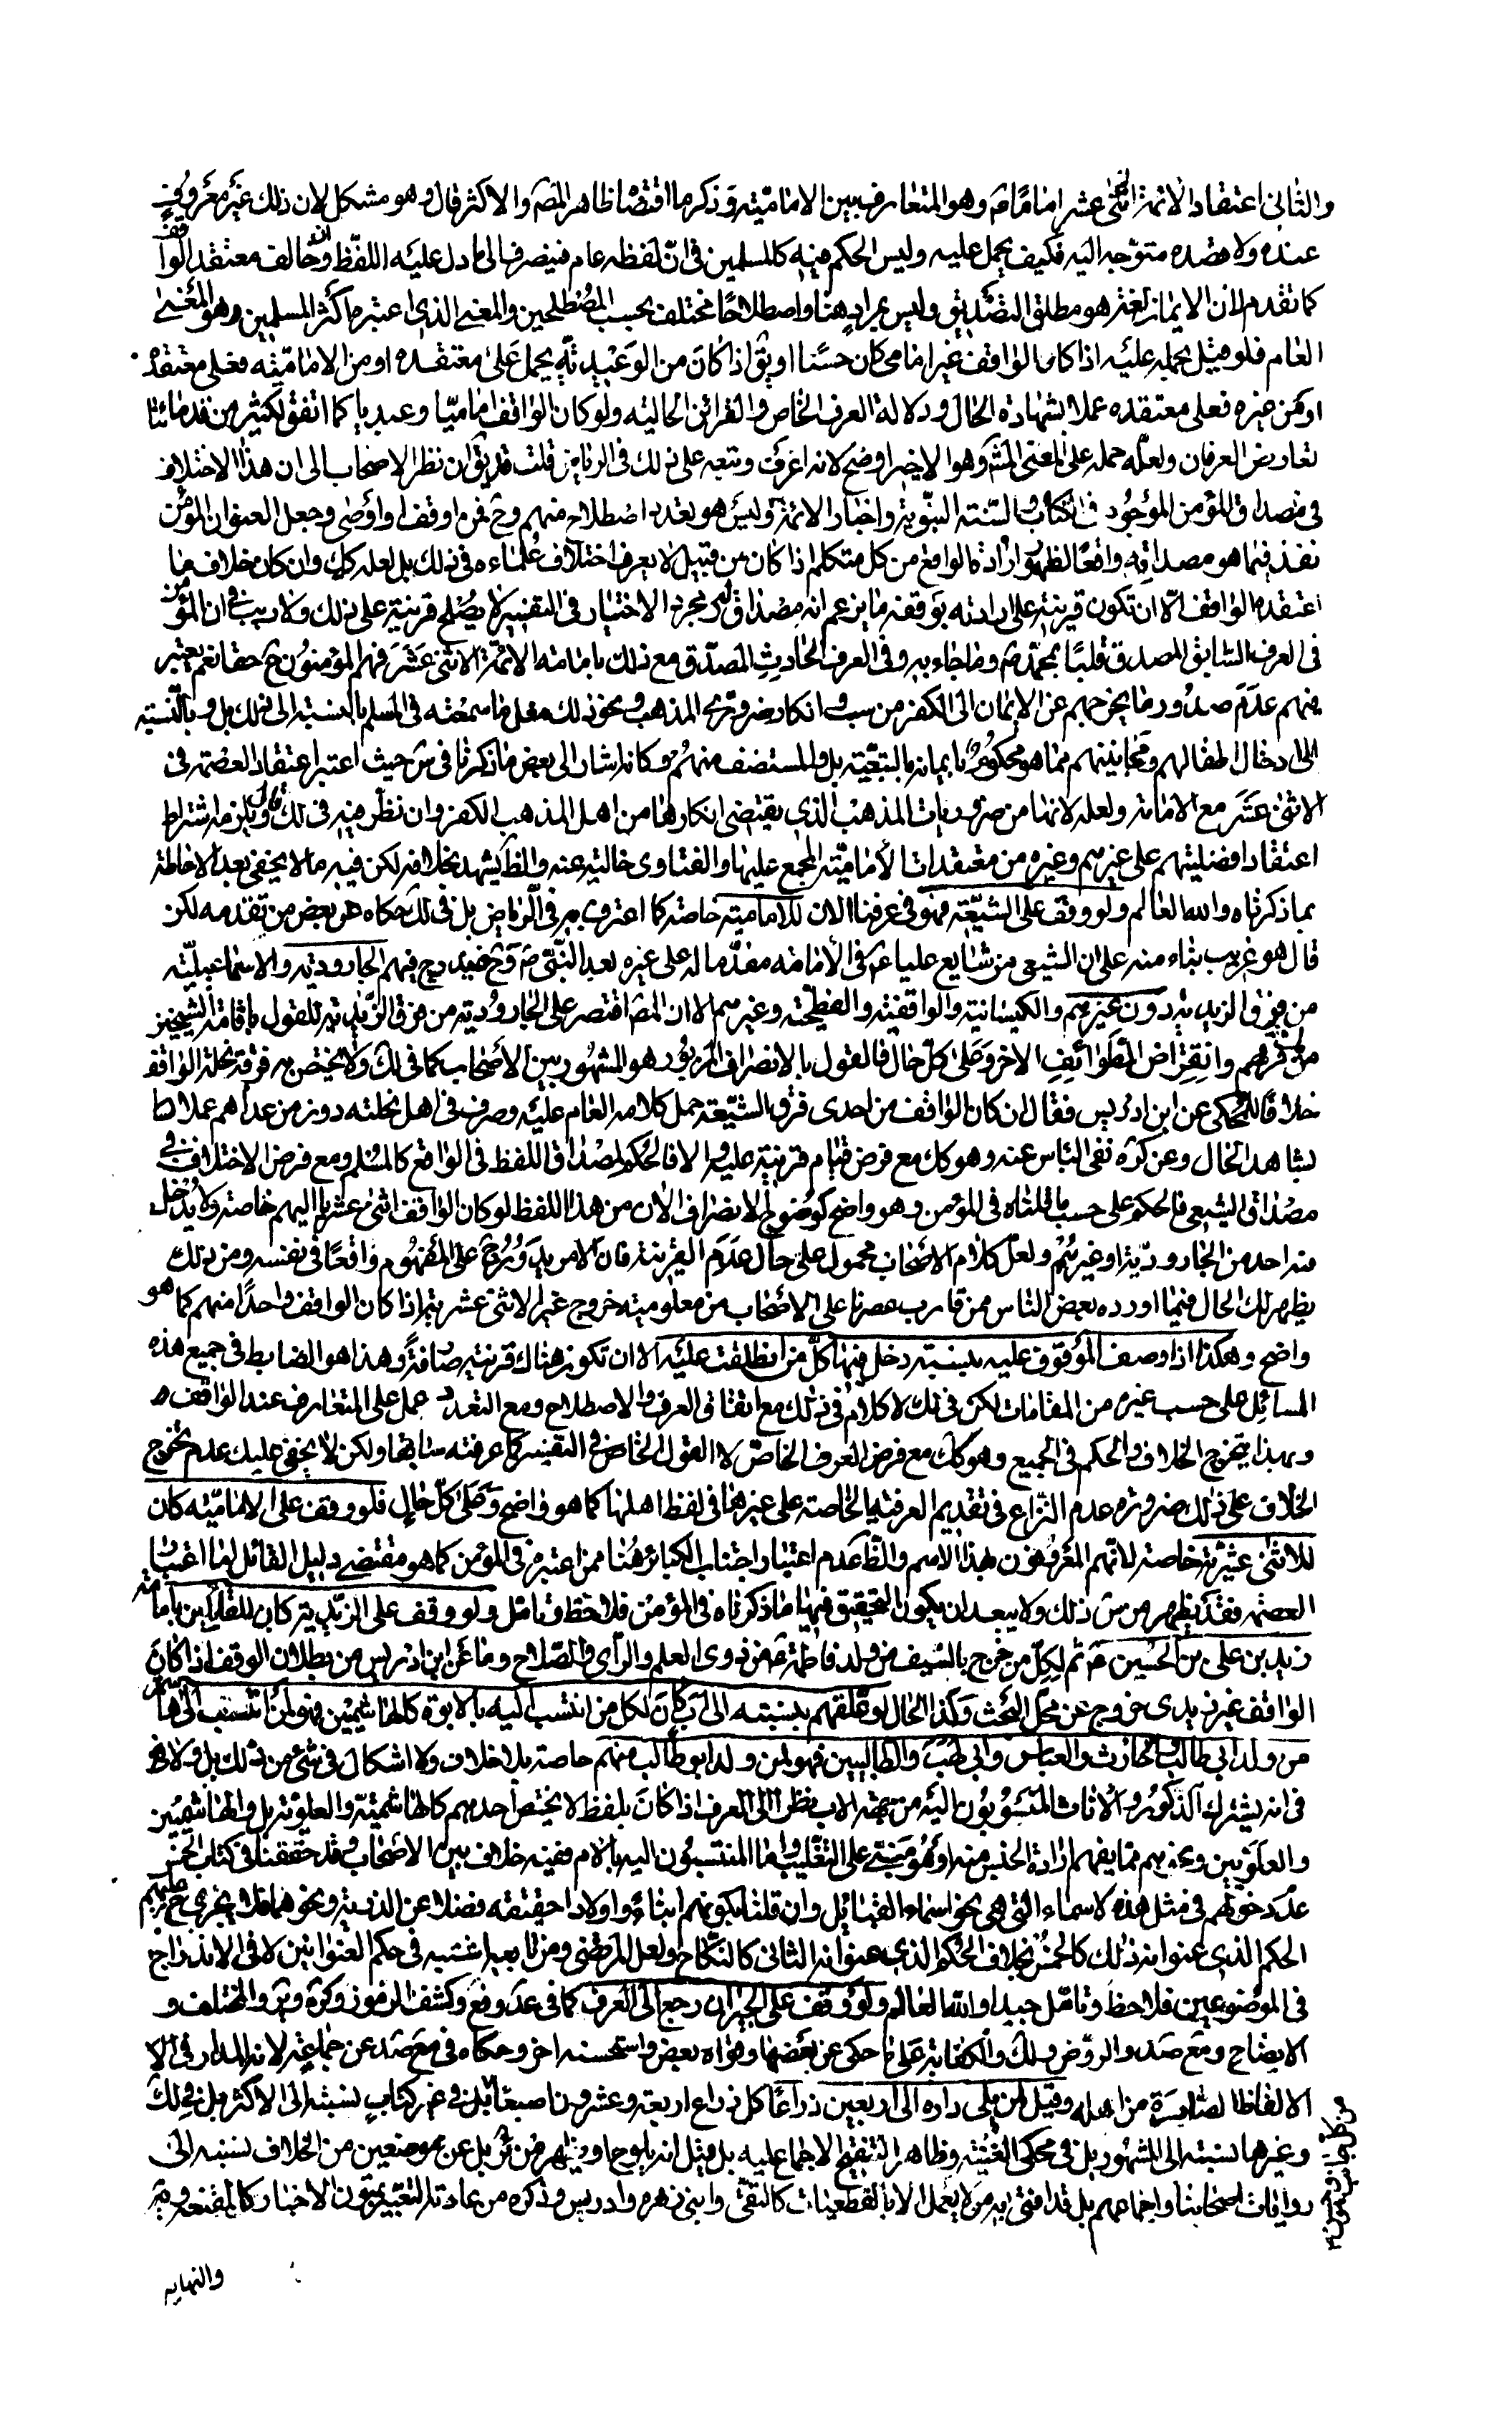 والثانى اعتقاد الائمة الاثنى عشر امامًا مّ وهو المتعارف بين الامامية وذكر ما اقتضا ظاهر المص والاكثر قال وهو مشكل لان ذلك غير معروف
عنده ولا قصده متوجه اليه فكيف يحمل عليه وليس الحكم فيه كالمسلمين فى ان لفظه عام فينصرف الى ما دل عليه اللفظ وان خالف معتقد الواقف
كما تقدم لان الايمان لغة هو مطلق التصديق وليس بمراد هنا واصطلاحًا مختلف بحسب المصطلحين والمعنى الذى اعتبره اكثر المسلمين وهو المعنى
العام فلو قيل بحمله عليه اذا كان الواقف غير امامى كان حسنا او يق اذا كان من الوعيدية يحمل على معتقده او من الامامية فعلى معتقده
او من غيره فعلى معتقده عملا بشهادة الحال ودلالة العرف الخاص والقرائن الحالية ولو كان الواقف اماميا وعيديا كما اتفق لكثير من قدمائنا
تعارض العرفان ولعل حمله على المعنى المش وهو الاخير اوضح لانه اعرف وتبعه على ذلك فى الرياض قلت قد يق ان نظر الاصحاب الى ان هذا الاختلاف
فى مصداق المؤمن الموجود فى الكتاب والسنة النبوية واخبار الائمة وليس هو تعدد اصطلاح منهم وح فمن اوقف او اوصى وجعل العنوان المؤمن
نفذ فيما هو مصداقه واقعًا لظهور ارادة الواقع من كل متكلم اذا كان من قبيل لا يعرف اختلاف علماءه فى ذلك بل لعله كك وان كان خلاف ما
اعتقده الواقف الا ان تكون قرينة على ارادته بوقفه ما يزعم انه مصداق له ومجرد الاختيار فى التفسير لا يصلح قرينة على ذلك ولا ريب فى ان المؤمن
فى العرف السابق المصدق قلبًا بمحمد ص وما جاء به وفى العرف الحادث المصدق مع ذلك بامامة الائمة الاثنى عشر فهم المؤمنون ح حقا نعم يعتبر
فيهم عدم صدور ما يخرجهم عن الايمان الى الكفر من سب وانكار ضرورى المذهب ونحو ذلك مثل ما سمعته فى المسلم بالنسبة الى ذلك بل وبالنسبة
الى ادخال اطفالهم ومجانينهم مما هو محكوم بايمانه بالتبعية بل والمستضعف منهم وكانه اشار الى بعض ما ذكرنا فى س حيث اعتبر اعتقاد العصمة فى
الاثنى عشر مع الامامة ولعله لانها من ضروريات المذهب الذى يقتضى انكارها من اهل المذهب الكفر وان نظر فيه فى لك قال ويلزمه اشتراط
اعتقاد افضليتهم على غيرهم وغيره من معتقدات الامامية المجمع عليها والفتاوى خالية عنه والظ يشهد بخلافه لكن فيه ما لا يخفى بعد الاحاطة
بما ذكرناه والله العالم ولو وقف على الشيعة فهو فى عرفنا الان للامامية خاصة كما اعترف به فى الرياض بل فى لك حكاه هو بعض من تقدمه لكن
قال هو غريب بناء منه على ان الشيعى من شايع عليا ع فى الامامة مقدما له على غيره بعد النبى ص وح فيندرج فيهم الجارودية والاسماعيلية
من فرق الزيدية دون غيرهم والكيسانية والواقفية والفطحية وغيرهم الا ان المص اقتصر على الجارودية من فرق الزيدية للقول بامامة الشيخين
من غيرهم وانقراض الطوائف الاخر وعلى كل حال فالقول بالانصراف المزبور هو المشهور بين الاصحاب كما فى لك ولا يختص به فرقة نحلة الواقف
خلافا للمحكى عن ابن ادريس فقال ان كان الواقف من احدى فرق الشيعة حمل كلامه العام عليه وصرف فى اهل نحلته دون من عداهم عملا
بشاهد الحال وعن كره نفى الباس عنه وهو كك مع فرض قيام قرينة عليه والا فالحكم لمصداق اللفظ فى الواقع كالمسلم ومع فرض الاختلاف فى
مصداق الشيعى فالحكم على حسب ما قلناه فى المؤمن وهو واضح كوضوح الانصراف الان من هذا اللفظ لو كان الواقف اثنى عشريا اليهم خاصة ولا يدخل
منه احد من الجارودية او غيرهم ولعل كلام الاصحاب محمول على حال عدم القرينة فان الامر يدور ح على المفهوم واقعًا فى نفسه ومن ذلك
يظهر لك الحال فيما اورده بعض الناس ممن قارب عصرنا على الاصحاب من معلومية خروج غير الاثنى عشرية اذا كان الواقف واحدًا منهم كما هو
واضح وهكذا اذا وصف الموقوف عليه بنسبة دخل فيها كل من اطلقت عليه الا ان تكون هناك قرينة صارفة وهذا هو الضابط فى جميع هذه
المسائل على حسب غيره من المقامات لكن فى لك لا كلام فى ذلك مع اتفاق العرف والاصطلاح ومع التعدد عمل على المتعارف عند الواقف
وبهذا يتخرج الخلاف والحكم فى الجميع وهو كك مع فرض العرف الخاص لا القول الخاص فى التفسير كما عرفته سابقا ولكن لا يخفى عليك عدم تخرج
الخلاف على ذلك ضرورة عدم النزاع فى تقديم العرفية الخاصة على غيرها فى لفظ اهلها كما هو واضح وعلى كل حال فلو وقف على الامامية كان
للاثنى عشرية خاصة لانهم المعروفون بهذا الاسم والظ عدم اعتبار اجتناب الكبائر هنا ممن اعتبره فى المؤمن كما هو مقتضى دليل القائل اما اعتبار
العصمة فقد يظهر من س ذلك ولا يبعد ان يكون التحقيق فيها ما ذكرناه فى المؤمن فلاحظ وتامل ولو وقف على الزيدية كان للقائلين بامامة
زيد بن على بن الحسين ع ثم لكل من خرج بالسيف من ولد فاطمة ع من ذوى العلم والراى والصلاح وما عن ابن ادريس من بطلان الوقف اذا كان
الواقف غير زيدى خروج عن محل البحث وكذا الحال لو علقهم بنسبته الى اب كان لكل من انتسب اليه بالابوة كالهاشميين فهو لمن انتسب الى هاشم
من ولد ابى طالب والحارث والعباس وابى لهب والطالبيين فهو لمن ولد ابو طالب منهم خاصة بلا خلاف ولا اشكال فى شئ من ذلك بل ولا
فى انه يشترك الذكور والاناث المنسوبون اليه من جهة الاب نظرا الى العرف اذا كان بلفظ لا يختص احدهم كالهاشمية والعلوية بل والهاشميين
والعلويين ونحوهم مما يفهم ارادة الجنس منه او هو مبنى على التغليب واما المنتسبون اليه بالام ففيه خلاف بين الاصحاب وقد حققنا فى كتاب الخمس
عدم دخولهم فى مثل هذه الاسماء التى هى نحو اسماء القبائل وان قلنا بكونهم ابناء واولادا حقيقة فضلا عن الذرية ونحوها فلا يجرى ح عليهم
الحكم الذى عنوانه ذلك كالخمس بخلاف الحكم الذى عنوانه الثانى كالنكاح ولعل المرتضى ومن تابعه اشتبه فى حكم العنوانين لا فى الاندراج
فى الموضوعين فلاحظ وتامل جيدا والله العالم ولو وقف على الجيران رجع الى العرف كما فى عد وفع وكشف الرموز وكره وير والمختلف و
الايضاح ومع صد والروض ولك والكفاية على ما حكى عن بعضها وقواه بعض واستحسنه اخر وحكاه فى مع صد عن جماعة لانه المدار فى
الالفاظ الصادرة من اهله وقيل لمن يلى داره الى اربعين ذراعًا كل ذراع اربعة وعشرون اصبعا بل فى غير كتاب نسبته الى الاكثر بل فى لك
وغيرها نسبته الى المشهور بل فى محكى الغنية وظاهر التنقيح الاجماع عليه بل قيل انه يلوح او يظهر من ئر بل عن موضعين من الخلاف نسبته الى
روايات اصحابنا واجماعهم بل قد افتى به من لا يعمل الا بالقطعيات كالتقى وابنى زهره وادريس وذكره من عادته التعبير بمتون الاخبار كالمقنعه و
والنهايه